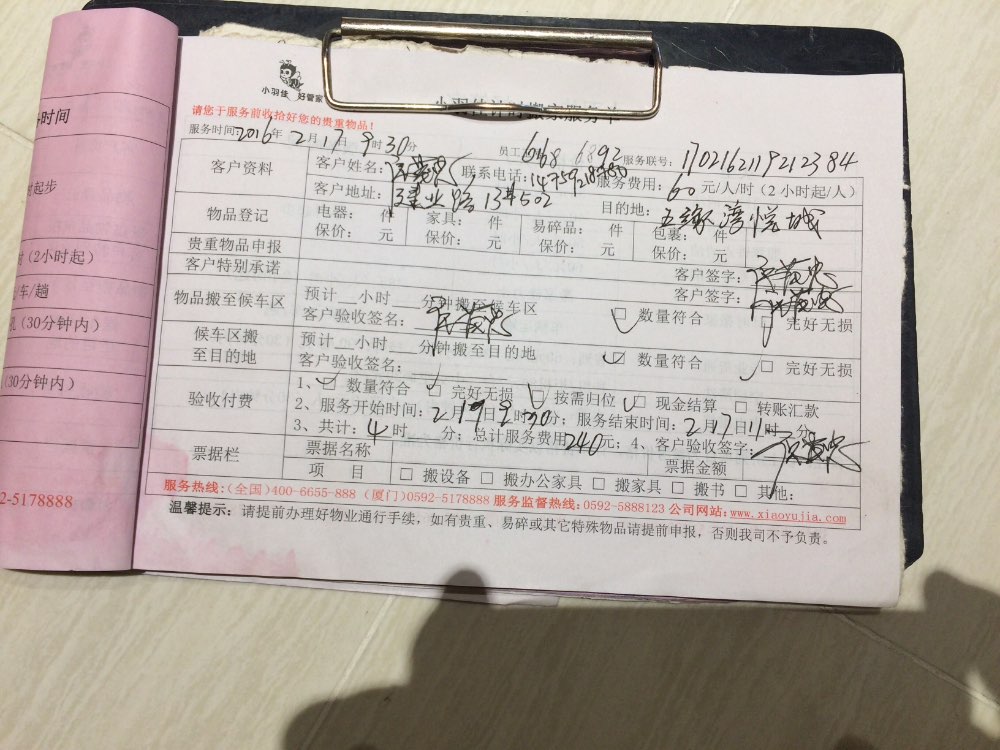 小羽佳 好管家
请您于服务前收拾好您的贵重物品！
服务时间2016年2月17日9时30分 员工 668 6892 服务联号：1702162119212384
客户资料 客户姓名： 联系电话：14759218780 服务费用：60元/人/时（2小时起/人）
客户地址：建业路13#502 目的地：五缘湾悦城
物品登记 电器： 件 家具： 件 易碎品： 件 包裹： 件
保价： 元 保价： 元 保价： 元 保价： 元
贵重物品申报 客户签字：
客户特别承诺 客户签字：
物品搬至候车区 预计__小时 分钟搬至候车区 □ 数量符合 □ 完好无损
客户验收签名：
候车区搬至目的地 预计__小时 分钟搬至目的地 □ 数量符合 □ 完好无损
客户验收签名：
验收付费 1、□ 数量符合 完好无损 □ 按需归位 □ 现金结算 □ 转账汇款
2、服务开始时间：2月17日9时30分；服务结束时间：2月17日11时 分；
3、共计：4时 分；总计服务费用240元；4、客户验收签字：
票据栏 票据名称 票据金额
项 目 □ 搬设备 □ 搬办公家具 □ 搬家具 □ 搬书 □ 其他：
服务热线：（全国）400-6655-888 （厦门）0592-5178888 服务监督热线：0592-5888123 公司网站：www.xiaoyujia.com
温馨提示：请提前办理好物业通行手续，如有贵重、易碎或其它特殊物品请提前申报，否则我司不予负责。
时间
时起步
（2小时起）
/车/趟
（30分钟内）
（30分钟内）
2-5178888